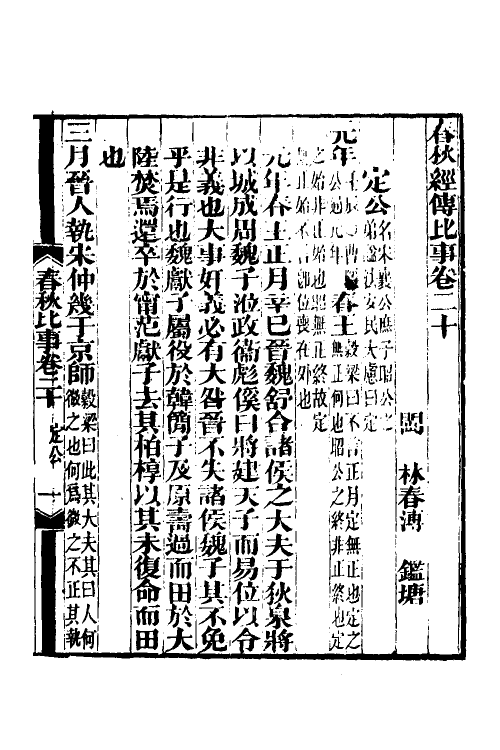 春秋經傳比事卷二十
閩 林春溥 鑑塘
定公名宋襄公庶子昭公之
弟諡法安民大慮曰定
元年 春王穀梁曰不言正月定無正也定之
無正何也昭公之終非正終也定
之始非正始也昭無正終故定
無正始不言即位喪在外也
元年春王正月辛巳晉魏舒合諸侯之大夫于狄泉將
以城成周魏子涖政衞彪傒曰將建天子而易位以令
非義也大事奸義必有大咎晉不失諸侯魏子其不免
乎是行也魏獻子屬役於韓簡子及原壽過而田於大
陸焚焉還卒於甯范獻子去其柏椁以其未復命而田
也
三月晉人執宋仲幾于京師穀梁曰此其大夫其曰人何
也微之也何爲微之不正其執
春秋比事卷二十 定公 一